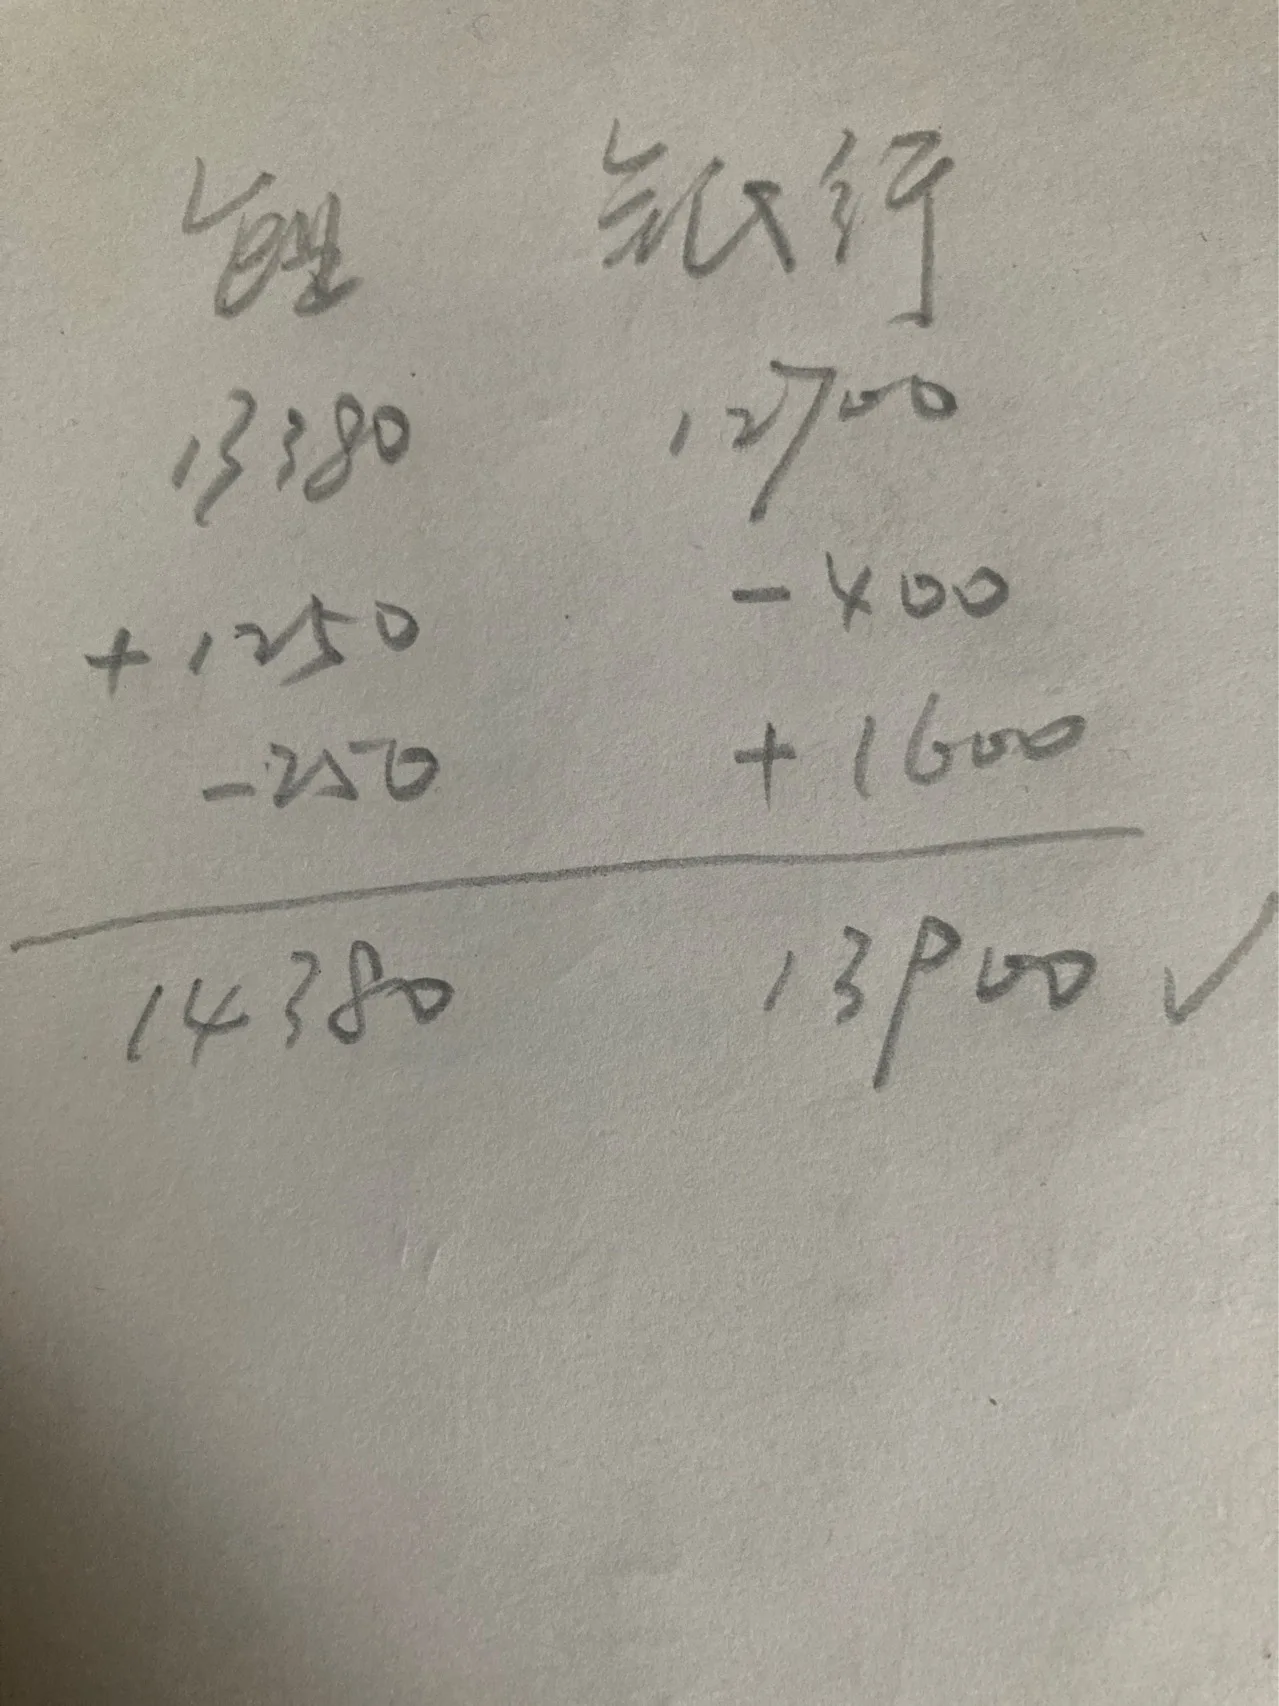 银行
13380 12700
+1250 -400
-250 +1600
14380 13900 ✓